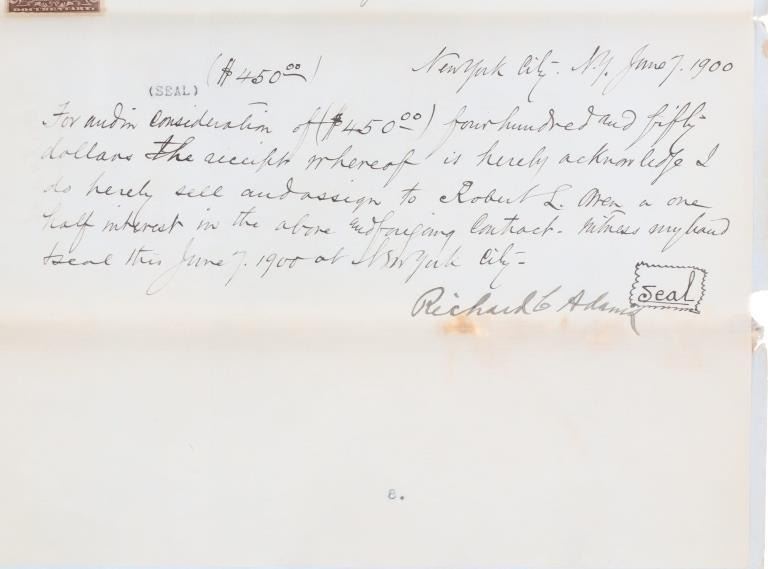 DOCUMENTARY.
($450.00)
New York City. N.Y. June 7. 1900
(SEAL)
For and in Consideration of ($450.00) four hundred and fifty
dollars The receipt whereof is hereby acknowledge I
do hereby sell and assign to Robert L. Owen a one
half interest in the above and forgoing Contract. Witness my hand
& seal this June 7. 1900 at New York City-
Richard C Adams
Seal
8.